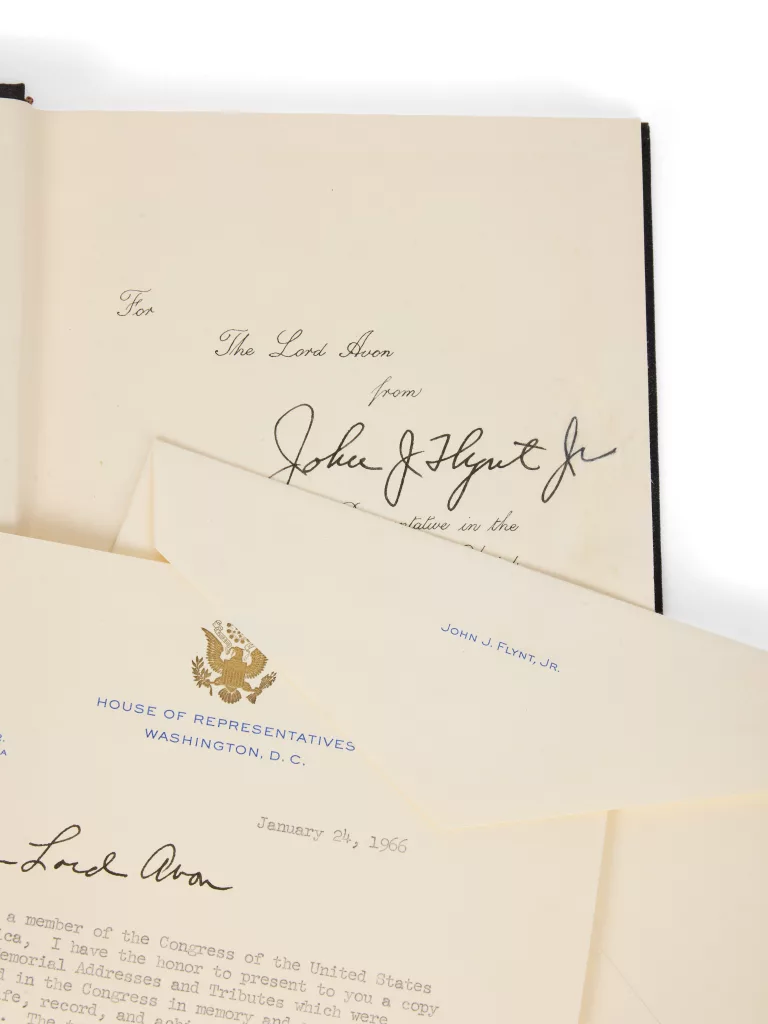 For
The Lord Avon
from
John J Flynt Jr
tative in the
JOHN J. FLYNT, JR.
HOUSE OF REPRESENTATIVES
WASHINGTON, D. C.
R.
A
January 24, 1966
Lord Avon
a member of the Congress of the United States
ica, I have the honor to present to you a copy
emorial Addresses and Tributes which were
d in the Congress in memory and
fe, record, and achi
. The